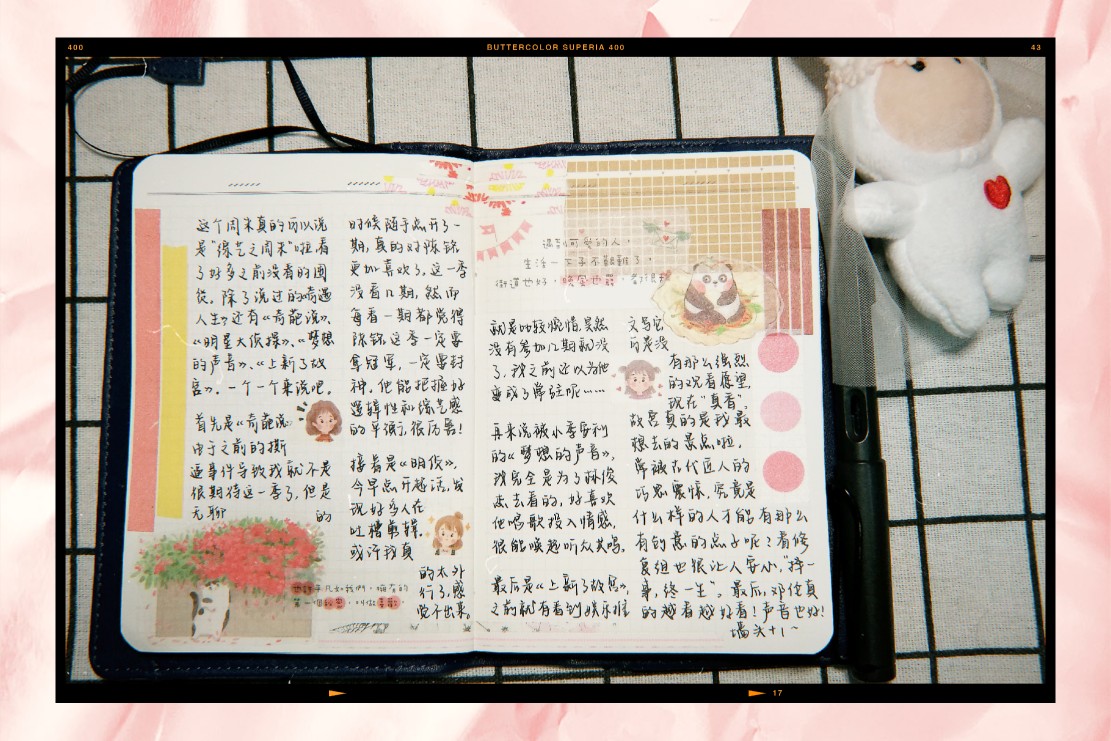 400
BUTTERCOLOR SUPERIA 400
43
这个周末真的可以说
是“综艺之周末”啦，看
了好多之前没看的囤
货，除了说过的《奇遇
人生》，还有《奇葩说》、
《明星大侦探》、《梦想
的声音》、《上新了故
宫》，一个一个来说吧。
首先是《奇葩说》
由于之前的撕
逼事件导致我就不是
很期待这一季了，但是
无聊 的
时候随手点开了一
期，真的对陈铭
更加喜欢了，这一季
没看几期，然而
每看一期都觉得
陈铭这季一定要
拿冠军，一定要封
神，他能把握好
逻辑性和综艺感
的平衡，很厉害！
接着是《明侦》，
今早点开超话，发
现好多人在
吐槽剪辑，
或许我真
的太外
行了，感
觉不出来。
也許平凡如我們，擁有的
第一個秘密，叫做喜歡。
遇到可愛的人，
生活一下子不艱難了。
街道也好，晚風也罷，
就是比较惋惜昊然
没有参加几期就没
了，我之前还以为他
变成了常驻呢……
再来说被小李安利
的《梦想的声音》，
我完全是为了林俊
杰去看的，好喜欢
他唱歌投入情感，
很能唤起听众共鸣。
最后是《上新了故宫》，
之前就有看到娱乐推
文写它
可是没
有那么强烈
的观看愿望，
现在“真香”，
故宫真的是我最
想去的景点啦，
常被古代匠人的
巧思震惊，究竟是
什么样的人才能有那么
有创意的点子呢？看修
复组也很让人安心，“择一
事，终一生”。最后，邓伦真
的越看越好看！声音也好！
墙头+1~
17